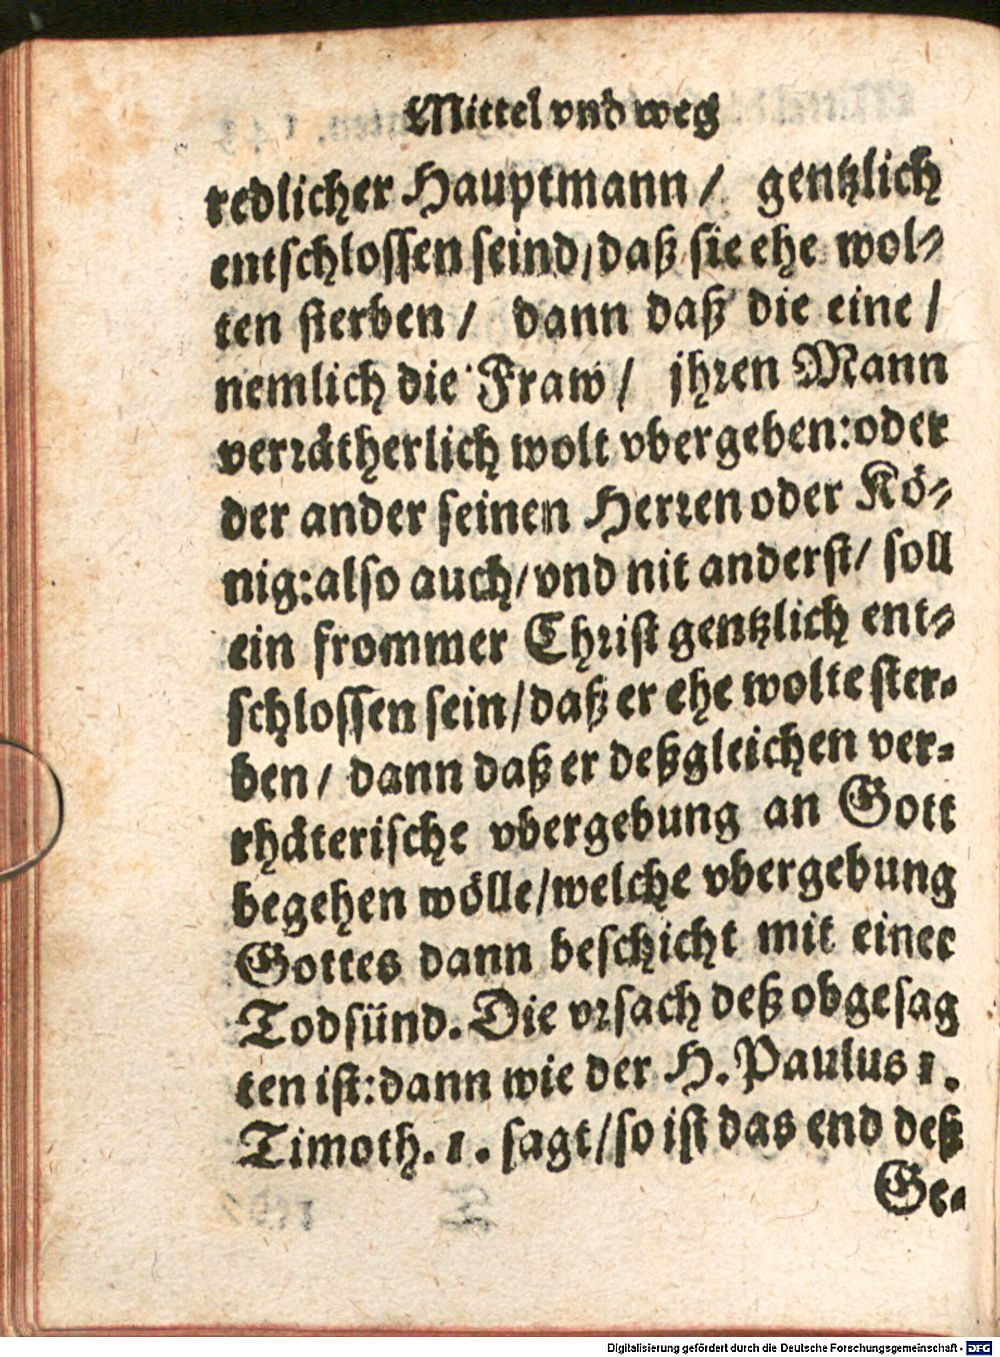 Mittel vnd weg
redlicher Hauptmann / gentzlich
entschlossen seind/daß sie ehe wol-
ten sterben / dann daß die eine /
nemlich die Fraw / jhren Mann
verrätherlich wolt vbergeben:oder
der ander seinen Herren oder Kö-
nig:also auch/vnd nit anderst/ soll
ein frommer Christ gentzlich ent-
schlossen sein/daß er ehe wolte ster-
ben / dann daß er deßgleichen ver-
rhäterische vbergebung an Gott
begehen wölle/welche vbergebung
Gottes dann beschicht mit einer
Todsünd. Die vrsach deß obgesag
ten ist:dann wie der H. Paulus 1.
Timoth. 1. sagt/so ist das end deß
Ge-
Digitalisierung gefördert durch die Deutsche Forschungsgemeinschaft - DFG